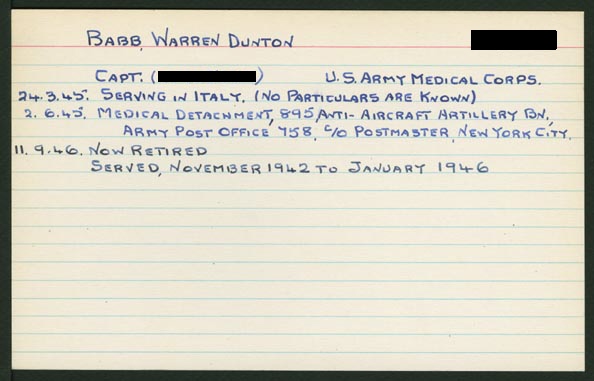 BABB, WARREN DUNTON
CAPT. ( ) U.S. ARMY MEDICAL CORPS.
24.3.45. SERVING IN ITALY. (NO PARTICULARS ARE KNOWN)
2.6.45. MEDICAL DETACHMENT, 895, ANTI-AIRCRAFT ARTILLERY BN,
ARMY POST OFFICE 758, C/O POSTMASTER, NEW YORK CITY.
11.9.46. NOW RETIRED
SERVED, NOVEMBER 1942 TO JANUARY 1946